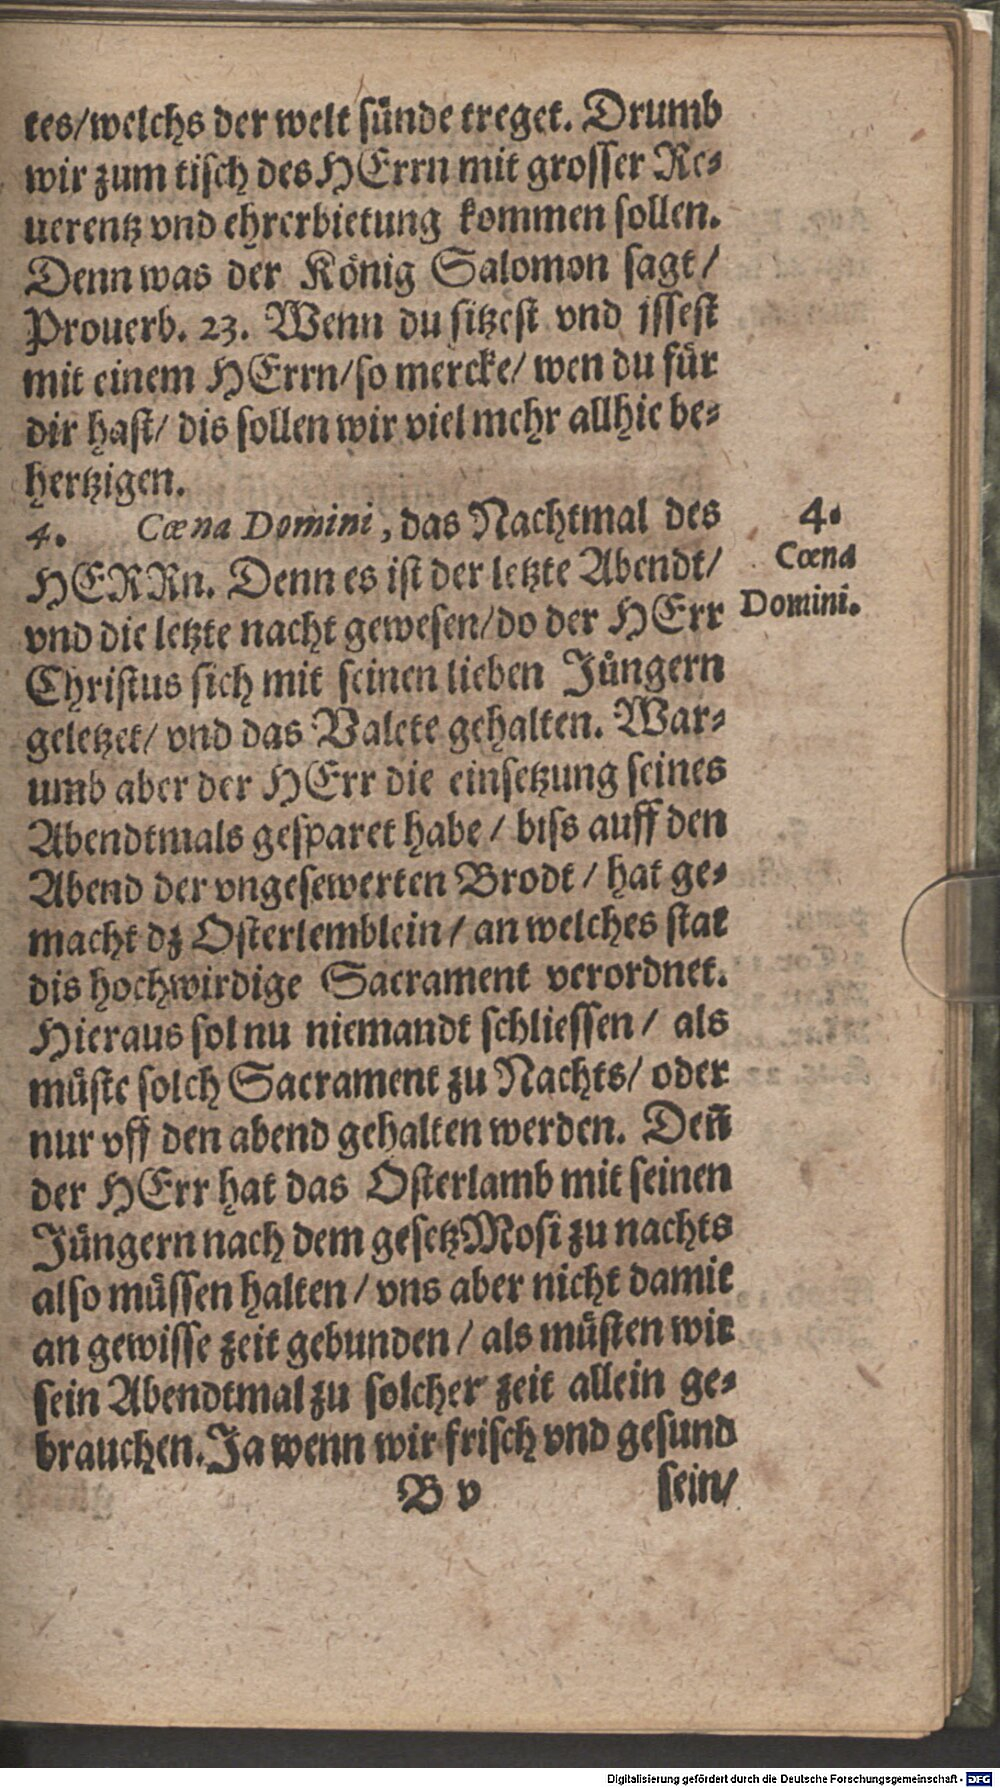 tes/welchs der welt sünde treget. Drumb
wir zum tisch des HErrn mit grosser Re-
uerentz vnd ehrerbietung kommen sollen.
Denn was der König Salomon sagt/
Prouerb. 23. Wenn du sitzest vnd issest
mit einem HErrn/so mercke/ wen du für
dir hast/ dis sollen wir viel mehr allhie be-
hertzigen.
4. Cœna Domini, das Nachtmal des
HERRn. Denn es ist der letzte Abendt/
vnd die letzte nacht gewesen/do der HErr
Christus sich mit seinen lieben Jüngern
geletzet/ vnd das Valete gehalten. War-
umb aber der HErr die einsetzung seines
Abendtmals gesparet habe / biss auff den
Abend der vngesewerten Brodt / hat ge-
macht dz Osterlemblein / an welches stat
dis hochwirdige Sacrament verordnet.
Hieraus sol nu niemandt schliessen / als
müste solch Sacrament zu Nachts/ oder
nur vff den abend gehalten werden. Deñ
der HErr hat das Osterlamb mit seinen
Jüngern nach dem gesetz Mosi zu nachts
also müssen halten / vns aber nicht damit
an gewisse zeit gebunden / als müsten wir
sein Abendtmal zu solcher zeit allein ge-
brauchen. Ja wenn wir frisch vnd gesund
B v sein/
4.
Cœna
Domini.
Digitalisierung gefördert durch die Deutsche Forschungsgemeinschaft - DFG